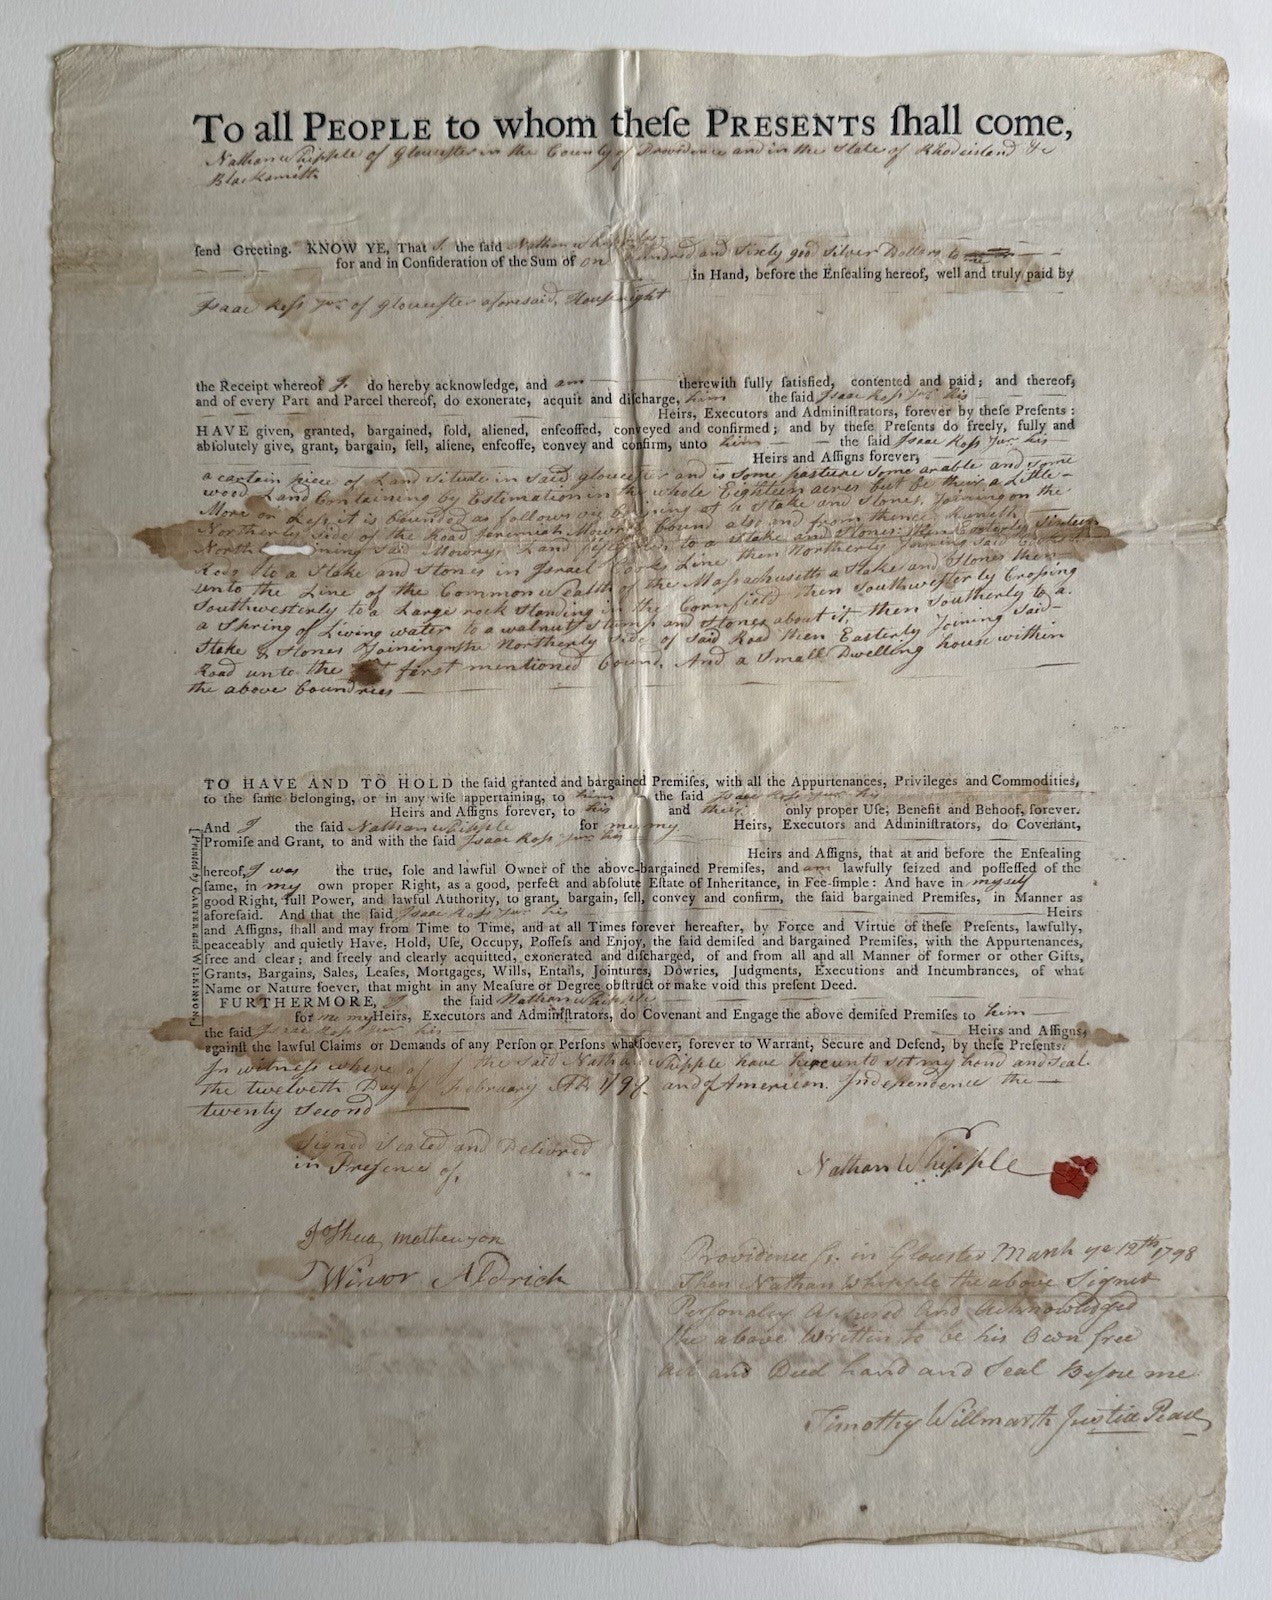 To all PEOPLE to whom theſe PRESENTS ſhall come,
Nathan Whipple of Gloucester in the County of Providence and in the State of Rhodeisland &c
Blacksmith
ſend Greeting. KNOW YE, That I the ſaid Nathan Whipple
for and in Conſideration of the Sum of one hundred and Sixty good Silver Dollars to
in Hand, before the Enſealing hereof, well and truly paid by
Isaac Ross Junr of Gloucester aforesaid, Houswright
the Receipt whereof I do hereby acknowledge, and am therewith fully ſatisfied, contented and paid; and thereof,
and of every Part and Parcel thereof, do exonerate, acquit and diſcharge, him the ſaid Isaac Ross Junr his
Heirs, Executors and Adminiſtrators, forever by theſe Preſents:
HAVE given, granted, bargained, ſold, aliened, enfeoffed, conveyed and confirmed; and by theſe Preſents do freely, fully and
abſolutely give, grant, bargain, ſell, aliene, enfeoffe, convey and confirm, unto him the ſaid Isaac Ross Junr his
Heirs and Aſſigns forever,
a certain piece of Land Situate in said gloucester and is some pasture some arable and some
wood Land Containing by Estimation in the whole Eighteen acres be their a Little
More or Less it is bounded as follows at a Stake and Stones Joining on the
Northerly side of the Road Jeremiah Mowry bound also and from thence Runeth
North ining Said Mowry Land to a Stake and Stones then Easterly Sixteen
Rods to a Stake and Stones in Israel Cooks Line then Northerly Joining Said Cooks
unto the Line of the Commonwealth of the Massachusetts a Stake and Stones then
Southwesterly to a Large rock Standing in the Cornfield then Southwesterly Crossing
a Spring of Living water to a walnut Stump and Stones about it, then Southerly to a
Stake & Stones Joining on the Northerly Side of Said Road then Easterly Joining Said
Road unto the first mentioned bound. And a Small Dwelling house within
the above boundrees
TO HAVE AND TO HOLD the ſaid granted and bargained Premiſes, with all the Appurtenances, Privileges and Commodities,
to the ſame belonging, or in any wiſe appertaining, to him the ſaid Isaac Ross Junr his
Heirs and Aſſigns forever, to his and their only proper Uſe, Benefit and Behoof, forever.
And I the ſaid Nathan Whipple for me, my Heirs, Executors and Adminiſtrators, do Covenant,
Promiſe and Grant, to and with the ſaid Isaac Ross Junr his
Heirs and Aſſigns, that at and before the Enſealing
hereof, I was the true, ſole and lawful Owner of the above-bargained Premiſes, and am lawfully ſeized and poſſeſſed of the
ſame, in my own proper Right, as a good, perfect and abſolute Eſtate of Inheritance, in Fee-ſimple: And have in myself
good Right, full Power, and lawful Authority, to grant, bargain, ſell, convey and confirm, the ſaid bargained Premiſes, in Manner as
aforeſaid. And that the ſaid Isaac Ross Junr his Heirs
and Aſſigns, ſhall and may from Time to Time, and at all Times forever hereafter, by Force and Virtue of theſe Preſents, lawfully,
peaceably and quietly Have, Hold, Uſe, Occupy, Poſſeſs and Enjoy, the ſaid demiſed and bargained Premiſes, with the Appurtenances,
free and clear; and freely and clearly acquitted, exonerated and diſcharged, of and from all and all Manner of former or other Gifts,
Grants, Bargains, Sales, Leaſes, Mortgages, Wills, Entails, Jointures, Dowries, Judgments, Executions and Incumbrances, of what
Name or Nature ſoever, that might in any Meaſure or Degree obſtruct or make void this preſent Deed.
FURTHERMORE, I the ſaid Nathan Whipple
for me my Heirs, Executors and Adminiſtrators, do Covenant and Engage the above demiſed Premiſes to him
the ſaid Isaac Ross Junr his Heirs and Aſſigns,
againſt the lawful Claims or Demands of any Perſon or Perſons whatſoever, forever to Warrant, Secure and Defend, by theſe Preſents.
[Printed by CARTER and WILKINSON.]
In witness where of I the Said Nathan Whipple have hereunto set my hand and seal
the twelveth Day of February AD. 1798 and of American Independence the
twenty second
Signed Sealed and Delivered
in Presence of,
Nathan Whipple
Joshua mathewson
Winsor Aldrich
Providence Sc. in Glouster March ye 12th 1798
Then Nathan Whipple the above Signer
Personaley appered and acknowledged
the above Written to be his own free
act and Deed hand and Seal Before me
Timothy Willmarth Justice Peace